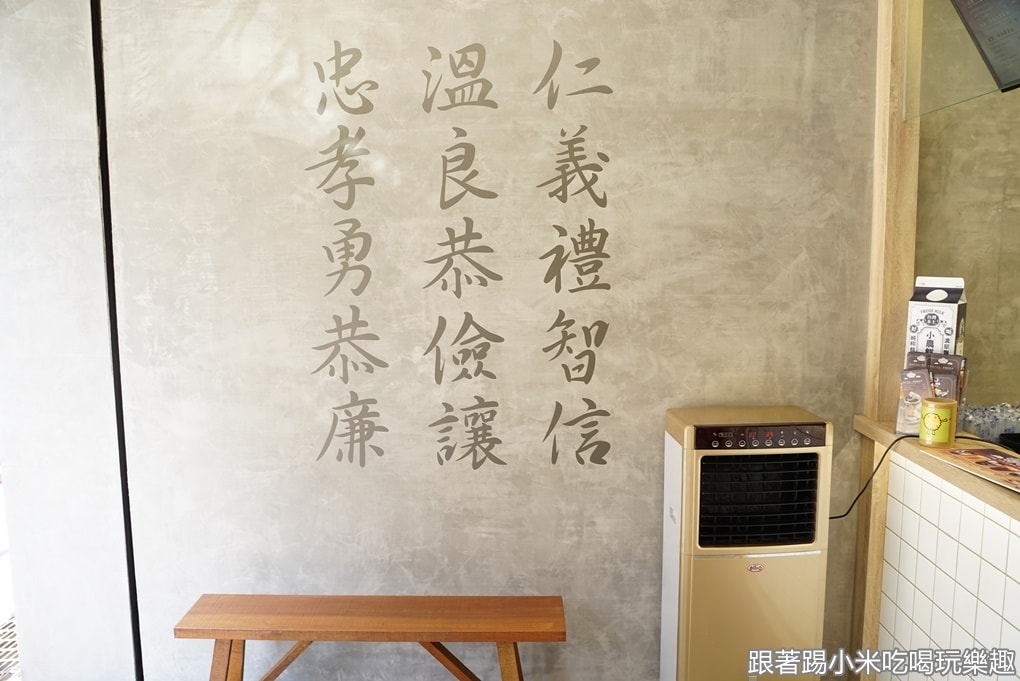 仁義禮智信
溫良恭儉讓
忠孝勇恭廉
小農鮮
跟著踢小米吃喝玩樂趣